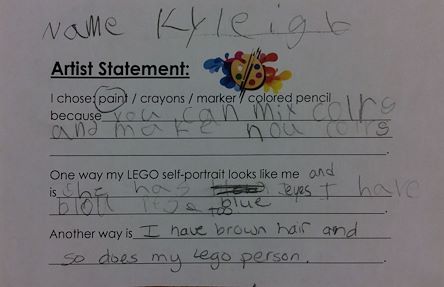 Name Kyleigh
Artist Statement:
I chose: paint / crayons / marker / colored pencil
because you can mix colrs
and make nou colrs
One way my LEGO self-portrait looks like me and
is she has eyes I have
blou blue
too
Another way is I have brown hair and
so does my Lego person.